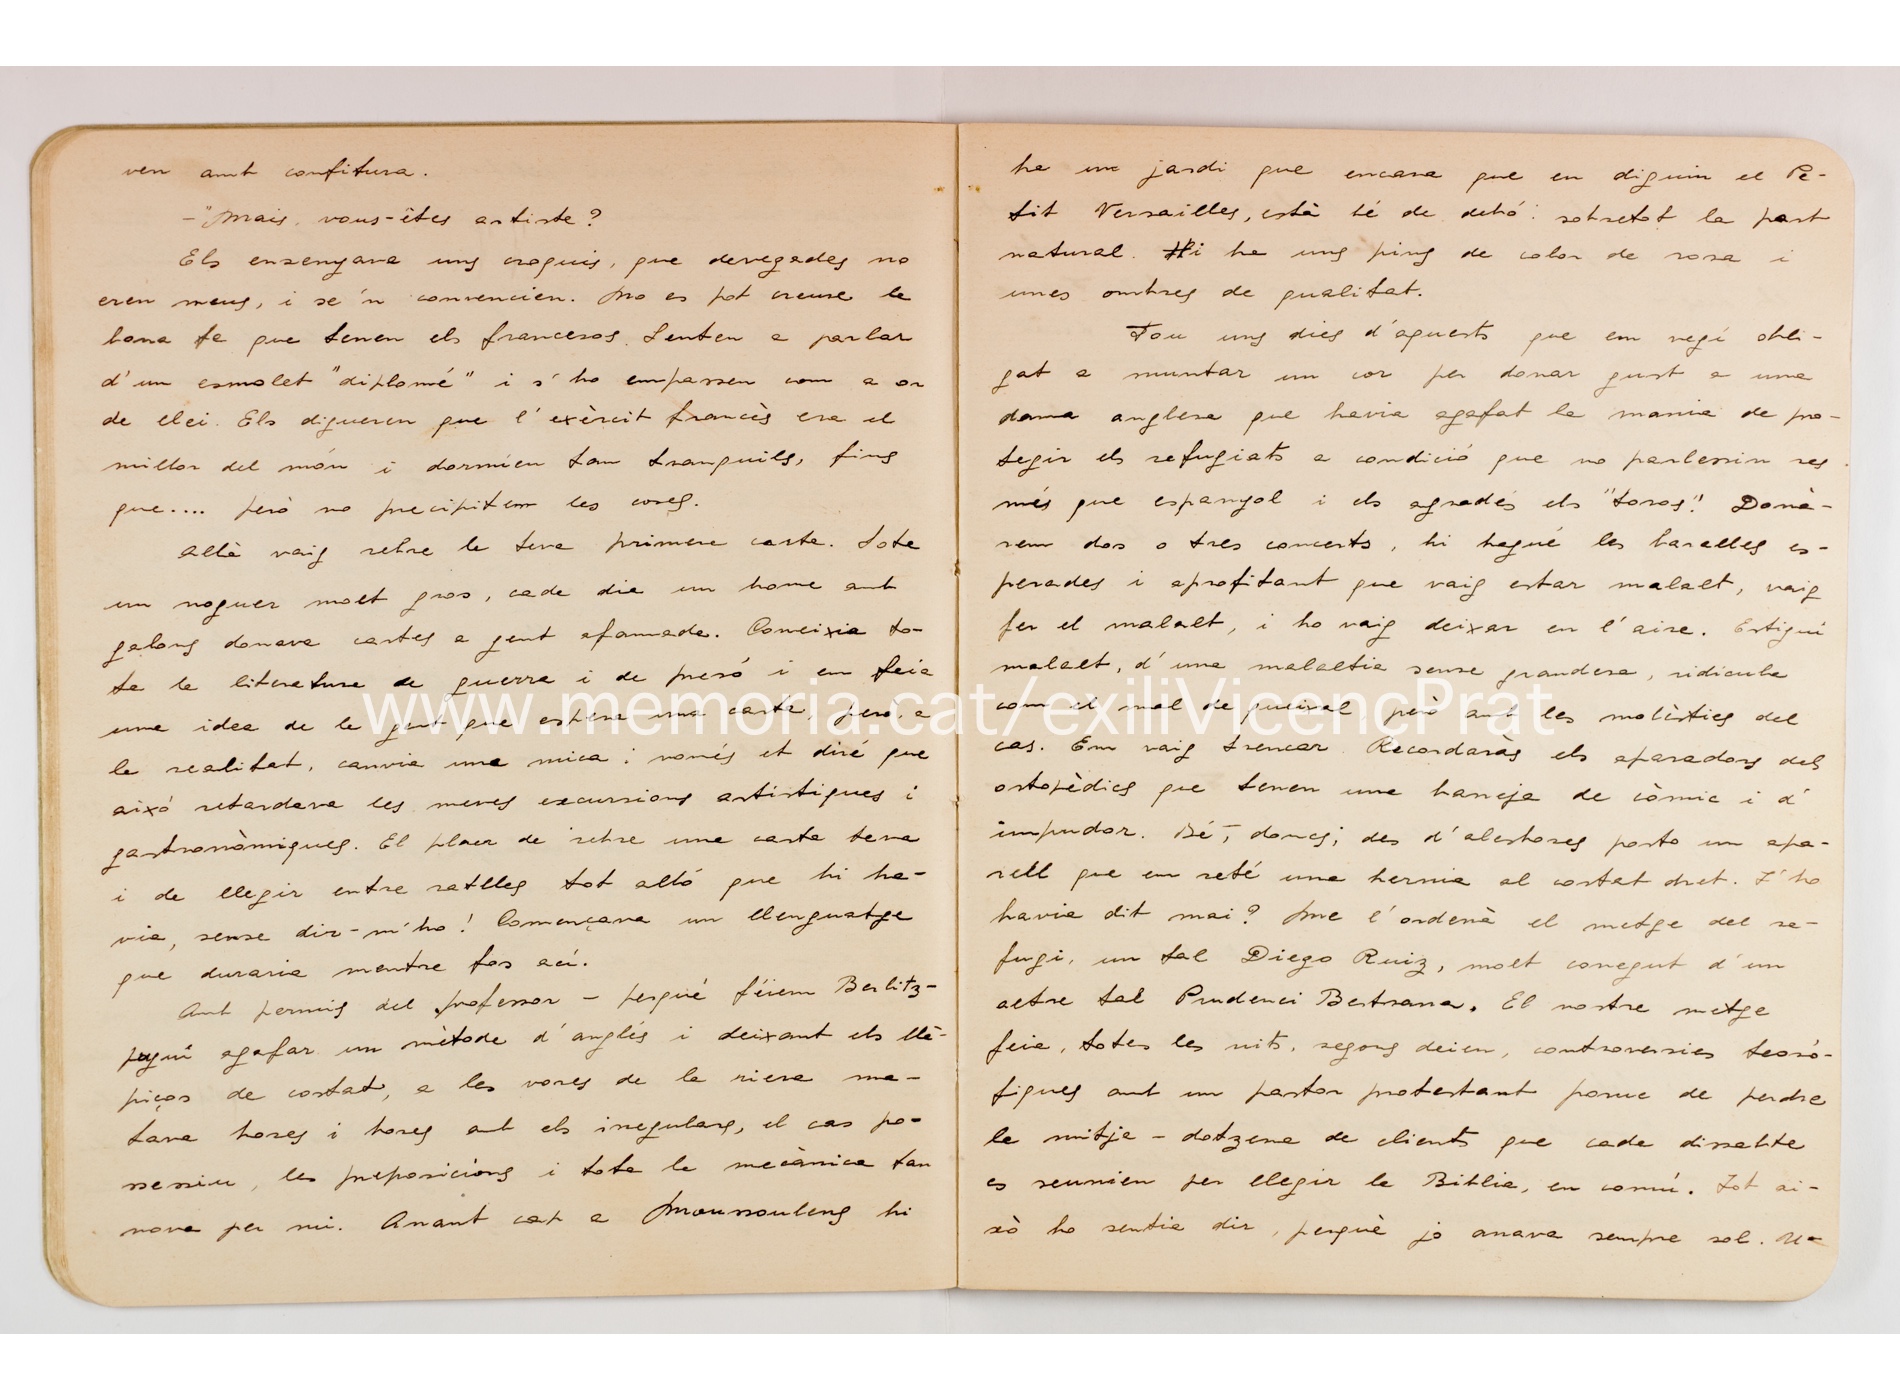 ven amb confitura.
-"Mais, vous-êtes artiste?
Els ensenyava uns croquis, que devegades no
eren meus, i se'n convencien. No es pot creure la
bona fe que tenen els francesos. Senten a parlar
d'un esmolet "diplomé" i s'ho empassen com a or
de llei. Els digueren que l'exèrcit francès era el
millor del món i dormien tan tranquils, fins
que.... però no precipitem les coses.
Allà vaig rebre la teva primera carta. Sota
un noguer molt gros, cada dia un home amb
galons donava cartes a gent afamada. Coneixia to-
ta la literatura de guerra i de presó i em feia
una idea de la gent que espera una carta, però, a
la realitat, canvia una mica i només et diré que
això retardava les meves excursions artístiques i
gastronòmiques. El plaer de rebre una carta teva
i de llegir entre ratlles tot allò que hi ha-
via, sense dir-m'ho! Començava un llenguatge
que duraria mentre fos ací.
Amb permís del professor - perquè féiem Berlitz-
poguí agafar un mètode d'anglés i deixant els llà-
piços de costat, a les vores de la riera ma-
tava hores i hores amb els irregulars, el cas po-
ssessiu, les preposicions i tota la mecànica tan
nova per mi. Anant cap a Moussoulens hi
ha un jardí que encara que en diguin el Pe-
tit Versailles, està bé de debó: sobretot la part
natural. Hi ha uns pins de color de rosa i
unes ombres de qualitat.
Fou uns dies d'aquests que em vegí obli-
gat a muntar un cor per donar gust a una
dama anglesa que havia agafat la mania de pro-
tegir els refugiats a condició que no parlessin res
més que espanyol i els agradés els "toros". Donà-
rem dos o tres concerts, hi hagué les baralles es-
perades i aprofitant que vaig estar malalt, vaig
fer el malalt, i ho vaig deixar en l'aire. Estiguí
malalt, d'una malaltia sense grandesa, ridícula
com el mal de queixal, però amb les molèsties del
cas. Em vaig trencar. Recordaràs els aparadors dels
ortopèdics que tenen una barreja de còmic i d'
impudor. Bé, doncs; des d'aleshores porto un apa-
rell que em reté una hernia al costat dret. T'ho
havia dit mai? Me l'ordenà el metge del re-
fugi, un tal Diego Ruiz, molt conegut d'un
altre tal Prudenci Bertrana. El nostre metge
feia, totes les nits, segons deien, controversies teosò-
fiques amb un pastor protestant poruc de perdre
la mitja-dotzena de clients que cada dissabte
es reunien per llegir la Biblia, en comú. Tot ai-
xò ho sentia dir, perquè jo anava sempre sol. U-
www.memoria.cat/exiliVicencPrat